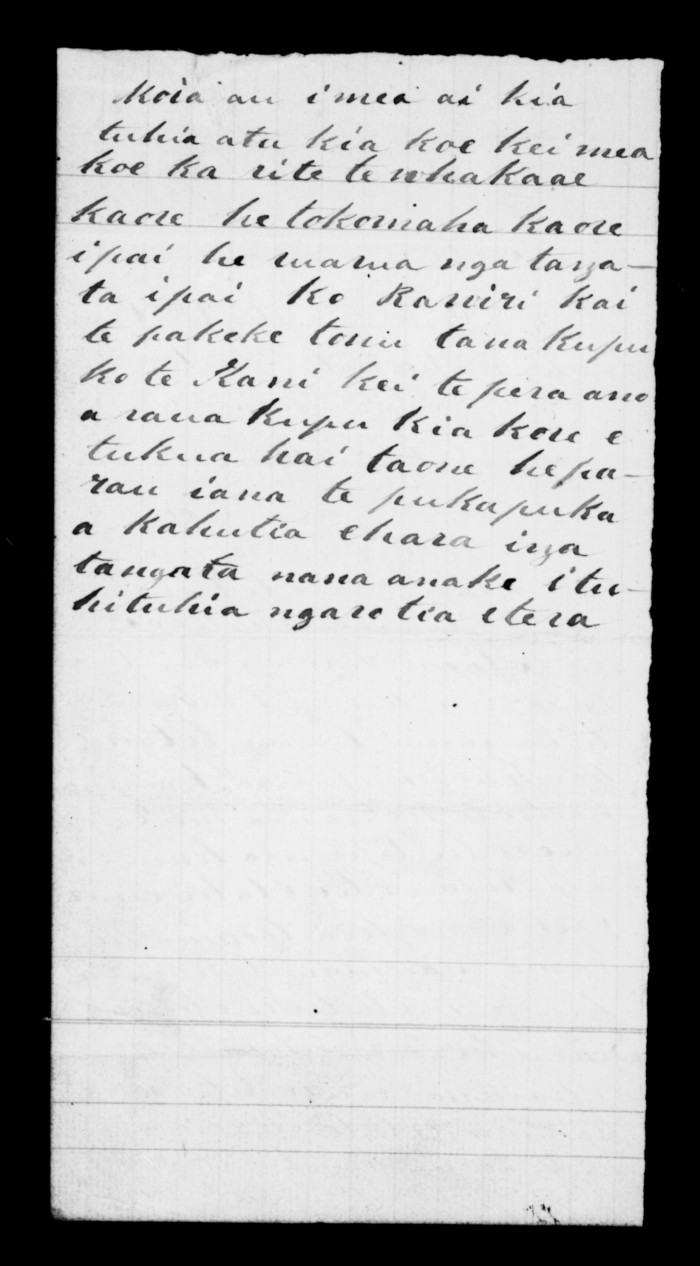 koia au i mea ai kia
tuhia atu kia koe kei mea
koe ka rite te whakaae
kaore he tokomaha kaore
ipai he marua nga tanga-
ta ipai ko Rawiri kai
te pakeke tonu tana kupu
ko te Kani kei te pera ano
a raua kupu kia kore e
tukua hai taone hepa-
rau iana te pukapuka
a kahutia ehara inga
tangata nana anake i tu-
hituhia ngaro tia etera